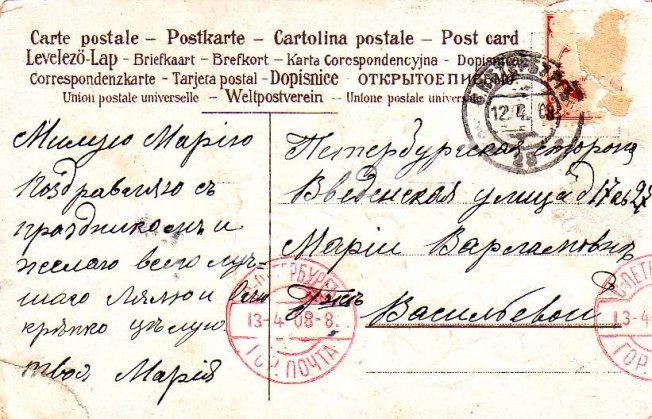 Carte postale – Postkarte – Cartolina postale – Post card
Levelező-Lap - Briefkaart - Brefkort - Karta Corespondencyjna - Dopisnice
Correspondenzkarte - Tarjeta postal - Dopisnice - ОТКРЫТОЕ ПИСЬМО
Union postale universelle – Weltpostverein – Unione postale universale
12.4.08
28
Милую Марію
Поздравляю съ
праздникомъ и
желаю всего луч-
шаго Лялю и
крѣпко цѣлую
твоя Марія
Петербургская сторона
Введенская улица д 17 кв 27
Маріи Варламовнѣ
Васильевой
С-ПЕТЕРБУРГЪ
13-4 08-8.
ГОР. ПОЧТА
С-ПЕТЕ
13-4
ГОР.